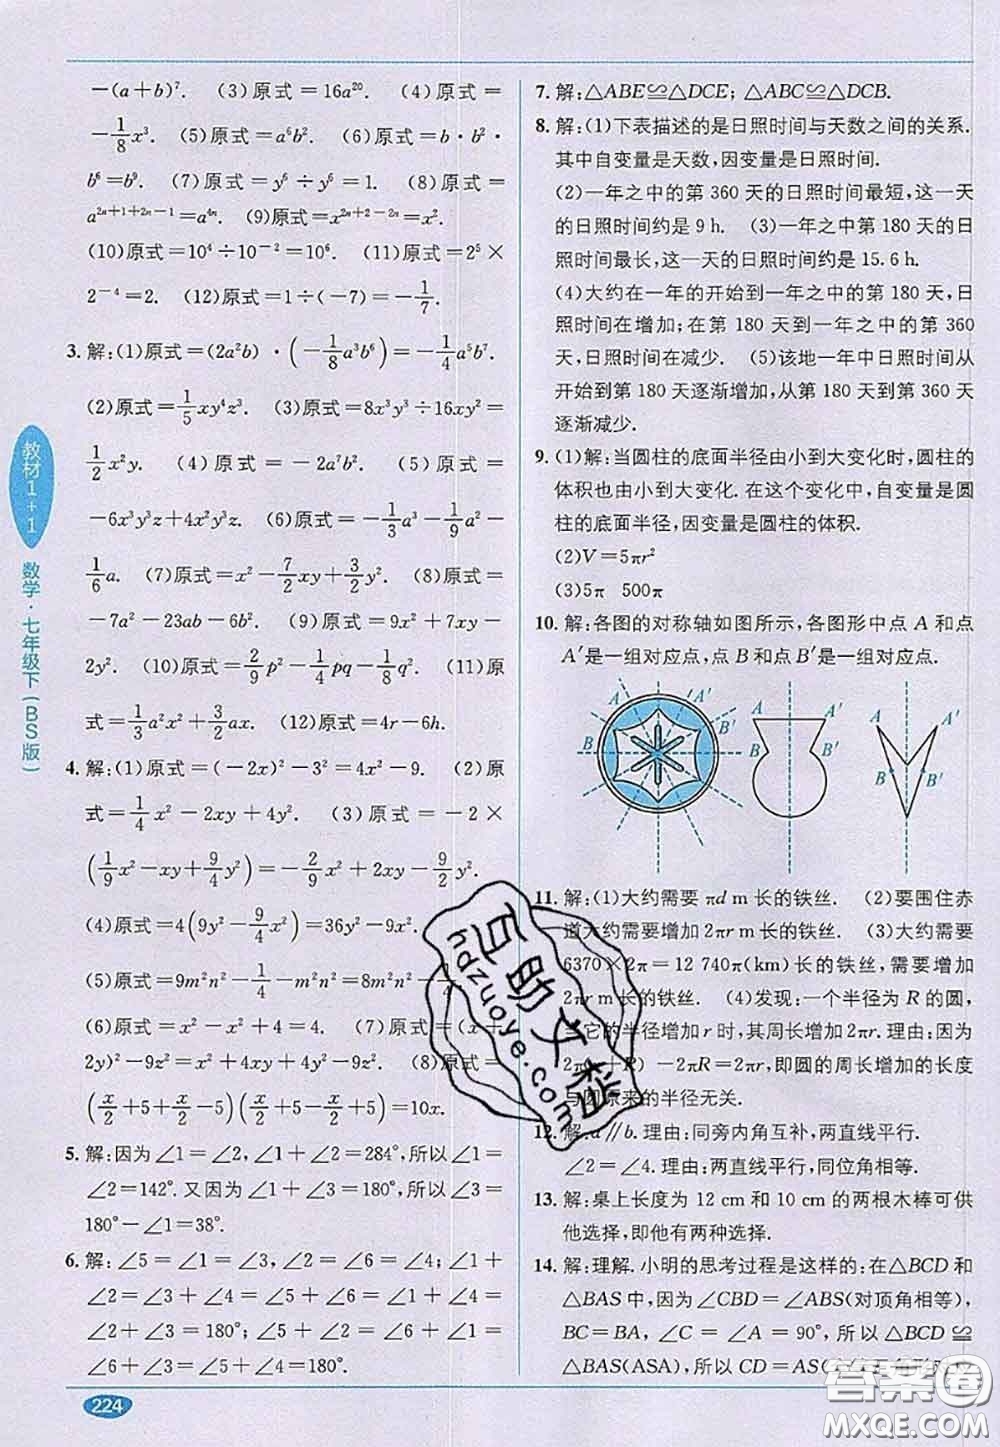 −(a+b)⁷. (3)原式=16a²⁰. (4)原式=
−1/8x³. (5)原式=a⁶b². (6)原式=b·b²·
b⁶=b⁹. (7)原式=y⁶÷y⁶=1. (8)原式=
a²ⁿ⁺¹⁺²ⁿ⁻¹=a⁴ⁿ. (9)原式=x²ⁿ⁺²⁻²ⁿ=x².
(10)原式=10⁴÷10⁻²=10⁶. (11)原式=2⁵×
2⁻⁴=2. (12)原式=1÷(−7)=−1/7.
3. 解:(1)原式=(2a²b)·(−1/8a³b⁶)=−1/4a⁵b⁷.
(2)原式=1/5xy⁴z³. (3)原式=8x³y³÷16xy²=
1/2x²y. (4)原式=−2a⁷b². (5)原式=
−6x³y³z+4x²y²z. (6)原式=−1/3a³−1/2a²−
1/6a. (7)原式=x²−7/2xy+3/2y². (8)原式=
−7a²−23ab−6b². (9)原式=9x²+7xy−
2y². (10)原式=2/9p²−1/4pq−1/8q². (11)原
式=1/3a²x²+3/2ax. (12)原式=4r−6h.
4. 解:(1)原式=(−2x)²−3²=4x²−9. (2)原
式=1/4x²−2xy+4y². (3)原式=−2×
(1/9x²−xy+9/4y²)=−2/9x²+2xy−9/2y².
(4)原式=4(9y²−9/4x²)=36y²−9x².
(5)原式=9m²−1/4−m²−1/4=8m²−1/2.
(6)原式=x²−x²+4=4. (7)原式=(x+
2y)²−9z²=x²+4xy+4y²−9z². (8)原式=
(x/2+5+x/2−5)(x/2+5−x/2+5)=10x.
5. 解:因为∠1=∠2,∠1+∠2=284°,所以∠1=
∠2=142°. 又因为∠1+∠3=180°,所以∠3=
180°−∠1=38°.
6. 解:∠5=∠1=∠3,∠2=∠6=∠4;∠1+
∠2=∠3+∠4=∠5+∠6=∠1+∠4=
∠2+∠3=180°;∠5+∠2=∠6+∠1=
∠6+∠3=∠5+∠4=180°.
7. 解:△ABE≌△DCE; △ABC≌△DCB.
8. 解:(1)下表描述的是日照时间与天数之间的关系.
其中自变量是天数,因变量是日照时间.
(2)一年之中的第 360 天的日照时间最短,这一天
的日照时间约是 9 h. (3)一年之中的第 180 天的
日照时间最长,这一天的日照时间约是 15.6 h.
(4)大约在一年的开始到一年之中的第 180 天,日
照时间在增加;在第 180 天到一年之中的第 360
天,日照时间在减少. (5)该地一年中日照时间从
开始到第 180 天逐渐增加,从第 180 天到第 360 天
逐渐减少.
9. (1)解:当圆柱的底面半径由小到大变化时,圆柱的
体积也由小到大变化. 在这个变化中,自变量是圆
柱的底面半径,因变量是圆柱的体积.
(2)V=5πr²
(3)5π 500π
10. 解:各图的对称轴如图所示,各图形中点 A 和点
A′是一组对应点,点 B 和点 B′是一组对应点.
A A′ B B′
A A′ B B′
A A′ B B′
11. 解:(1)大约需要 πd m 长的铁丝. (2)要围住赤
道大约需要增加 2πr m 长的铁丝. (3)大约需要
6370×2π=12 740π(km)长的铁丝,需要增加
2πr m 长的铁丝. (4)发现:一个半径为 R 的圆,
当它的半径增加 r 时,其周长增加 2πr. 理由:因为
2π(r+R)−2πR=2πr,即圆的周长增加的长度
与圆原来的半径无关.
12. 解:a∥b. 理由:同旁内角互补,两直线平行.
∠2=∠4. 理由:两直线平行,同位角相等.
13. 解:桌上长度为 12 cm 和 10 cm 的两根木棒可供
他选择,即他有两种选择.
14. 解:理解. 小明的思考过程是这样的:在△BCD 和
△BAS 中,因为∠CBD=∠ABS(对顶角相等),
BC=BA,∠C=∠A=90°,所以△BCD≌
△BAS(ASA),所以 CD=AS(全等三角形的对
教材1+1 数学·七年级下(BS版)
224
百助文档
hdzuoye.com
答案圈
MXQE.COM